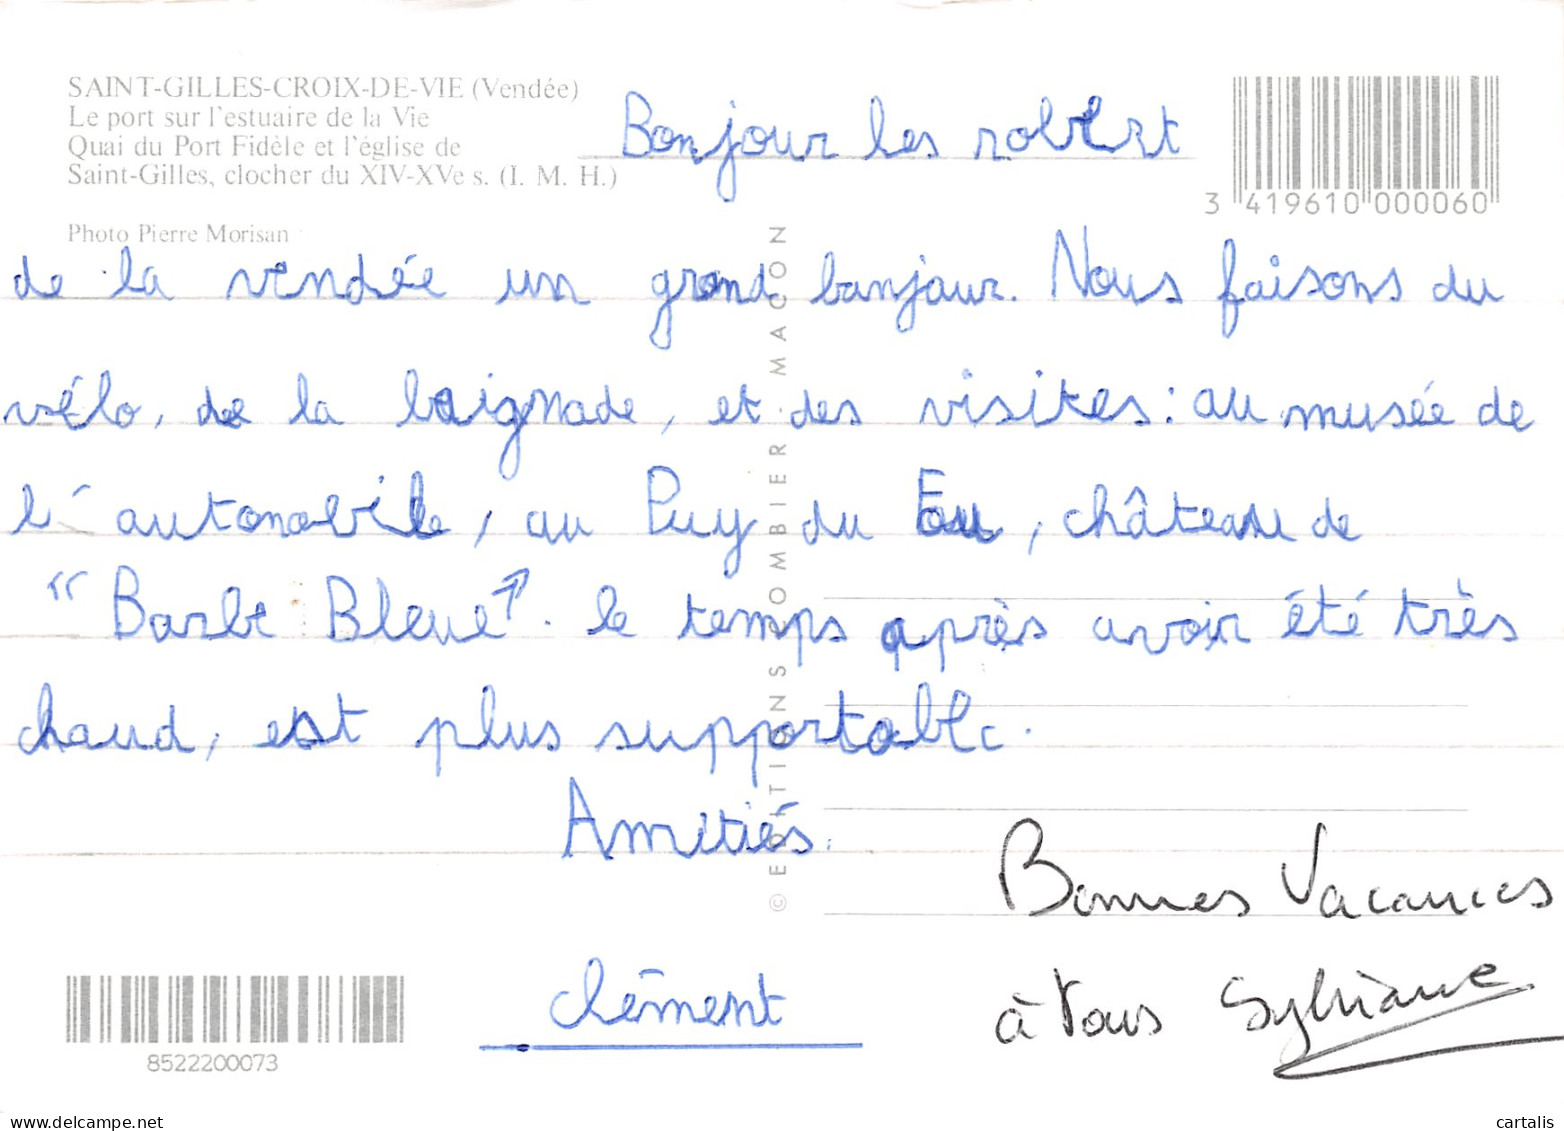 SAINT-GILLES-CROIX-DE-VIE (Vendée)
Le port sur l'estuaire de la Vie
Quai du Port Fidèle et l'église de
Saint-Gilles, clocher du XIV-XVe s. (I. M. H.)
Photo Pierre Morisan
3 419610 000060
Bonjour les robert
de la vendée un grand banjaur. Nous faisons du
vélo, de la baignade, et des visites : au musée de
l'automobile, au Puy du Fou, château de
"Barbe Bleue". le temps après avoir été très
chaud, est plus supportable.
Amitiés.
clément
Bonnes Vacances
à tous Sylviane
© EDITIONS COMBIER MACON
8522200073
www.delcampe.net
cartalis